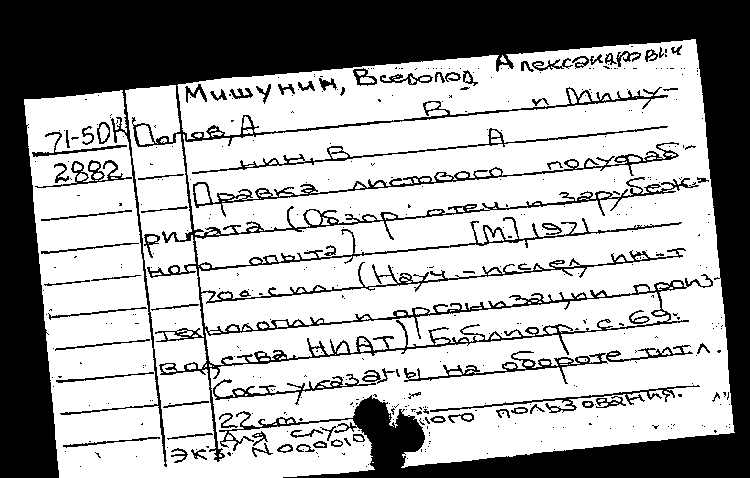 Мишунин, Всеволод Александрович
71-5DK Попов, А В и Мишу-
2882 нин, В А
Правка листового полуфаб-
риката. (Обзор отеч. и зарубеж-
ного опыта). [М.], 1971.
70 с. с ил. (Науч.-исслед. ин-т
технологии и организации произ-
водства. НИАТ). Библиогр.: с. 69.
Сост. указаны на обороте тит. л.
22 cm.
Для пользования.
экз. N